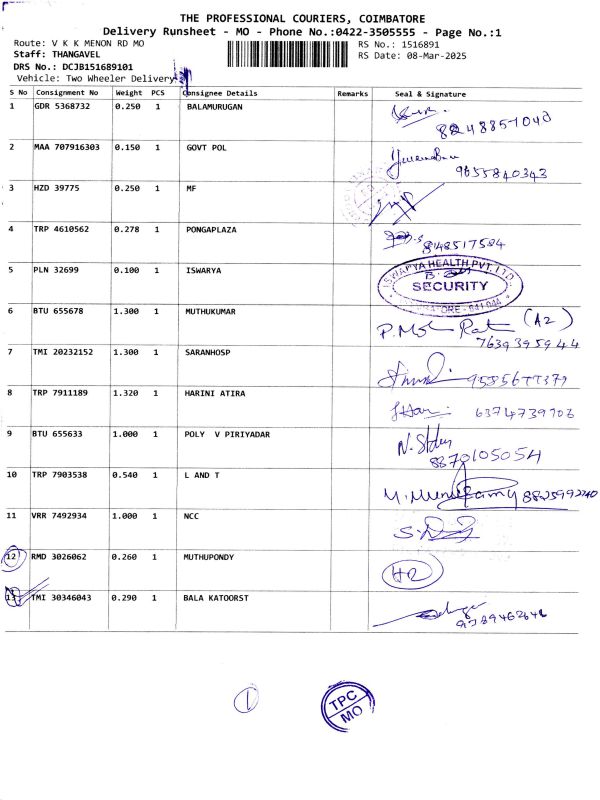 THE PROFESSIONAL COURIERS, COIMBATORE
Delivery Runsheet - MO - Phone No.:0422-3505555 - Page No.:1
Route: V K K MENON RD MO RS No.: 1516891
Staff: THANGAVEL RS Date: 08-Mar-2025
DRS No.: DCJB151689101
Vehicle: Two Wheeler Delivery
S No Consignment No Weight PCS Consignee Details Remarks Seal & Signature
1 GDR 5368732 0.250 1 BALAMURUGAN
8248857040
2 MAA 707916303 0.150 1 GOVT POL
9655840343
3 HZD 39775 0.250 1 MF
4 TRP 4610562 0.278 1 PONGAPLAZA
8148517584
5 PLN 32699 0.100 1 ISWARYA
ISWARYA HEALTH PVT. LTD.
SECURITY
COIMBATORE - 641 044
6 BTU 655678 1.300 1 MUTHUKUMAR
P. (A2)
7639395944
7 TMI 20232152 1.300 1 SARANHOSP
8 TRP 7911189 1.320 1 HARINI ATIRA
6374739706
9 BTU 655633 1.000 1 POLY V PIRIYADAR
8870105054
10 TRP 7903538 0.540 1 L AND T
8825992240
11 VRR 7492934 1.000 1 NCC
12 RMD 3026062 0.260 1 MUTHUPONDY
HR
13 TMI 30346043 0.290 1 BALA KATOORST
1
TPC
MO